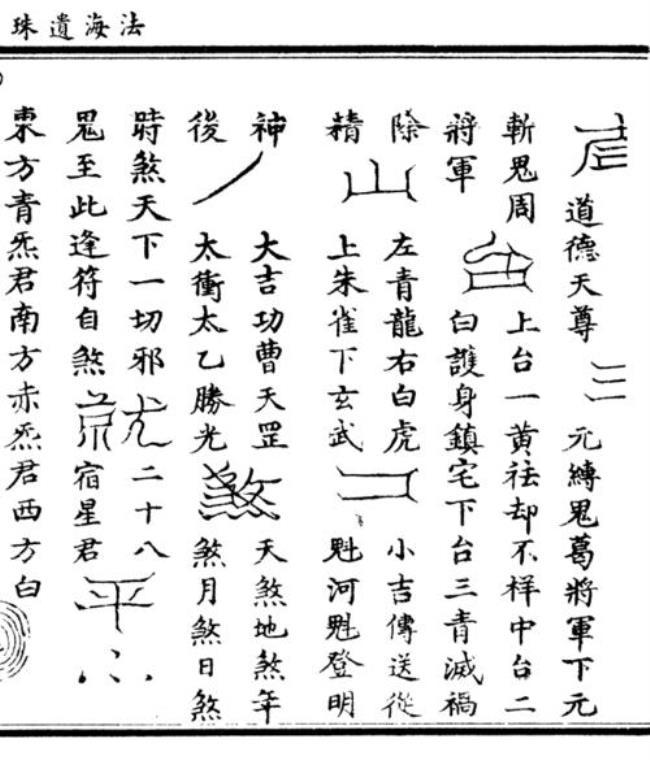 法海遺珠
道德天尊 三 元縛鬼葛將軍下元
斬鬼周 上台一黃祛却不祥中台二
將軍 白護身鎮宅下台三青滅禍
除 左青龍右白虎 小吉傳送從
精 山 上朱雀下玄武 魁河魁登明
神 大吉功曹天罡 煞 天煞地煞年
後 太衝太乙勝光 煞月煞日煞
時煞天下一切邪 二十八
鬼至此逢符自煞 宿星君 平
東方青炁君南方赤炁君西方白